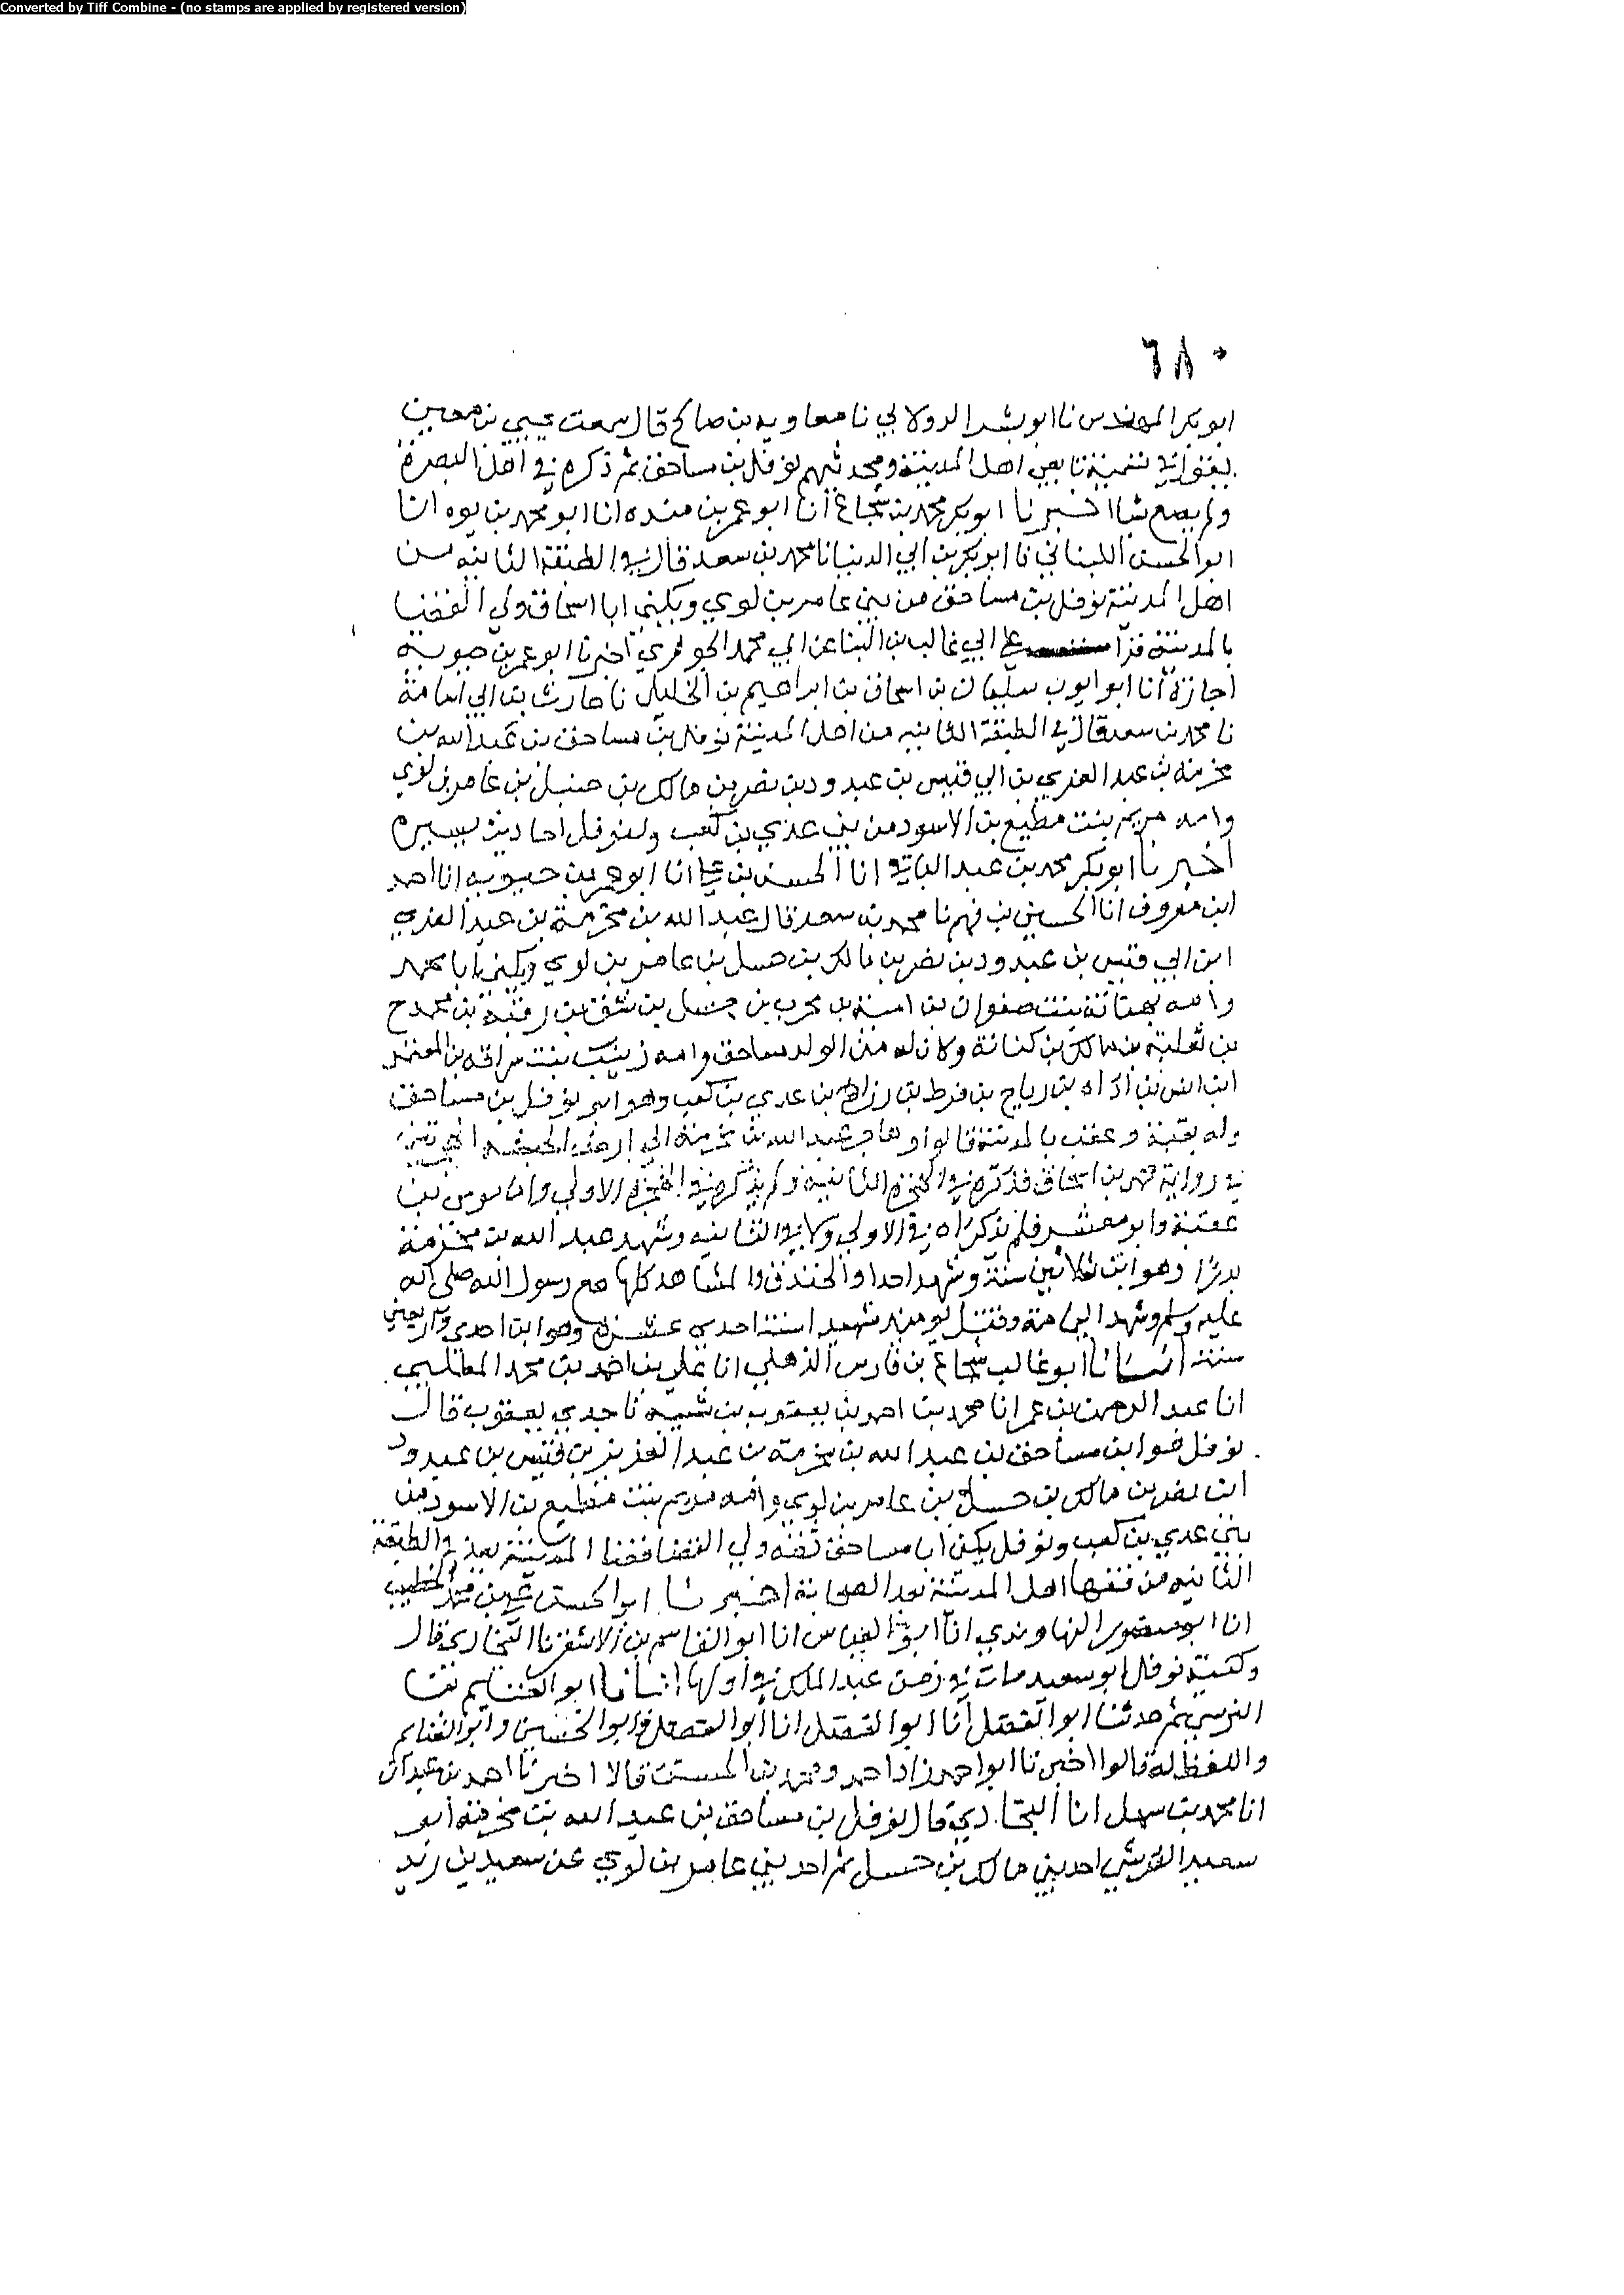 Converted by Tiff Combine - (no stamps are applied by registered version)
٦٨٠
ابو بكر المهندس نا ابو بشر الدولابي نا معاويه بن صالح قال سمعت يحيي بن معين
يقول في تسمية تابعي اهل المدينة ومحدثيهم نوفل بن مساحق ثم ذكره في اهل البصرة
ولم يصنع شيا اخبرنا ابو بكر محمد بن شجاع انا ابو عمر بن منده انا ابو محمد بن يوه انا
ابو الحسن اللبناني نا ابو بكر بن ابي الدنيا نا محمد بن سعد قال في الطبقة الثانيه من
اهل المدينة نوفل بن مساحق من بني عامر بن لوي ويكني ابا اسحاق ولي القضا
بالمدينة قرا علي ابي غالب بن البنا عن ابي محمد الجوهري اخبرنا ابو عمر بن حيويه
اجازة انا ابو ايوب سليمان بن اسحاق بن ابراهيم بن الخليل نا حارث بن ابي اسامة
نا محمد بن سعد قال في الطبقة الثانيه من اهل المدينة نوفل بن مساحق بن عبد الله بن
مخرمة بن عبد العزي بن ابي قيس بن عبد ود بن نصر بن مالك بن حنبل بن عامر بن لوي
وامه مريم بنت مطيع بن الاسود من بني عدي بن كعب ولنوفل احاديث يسيره
اخبرنا ابو بكر محمد بن عبد الباقي انا الحسن بن علي انا ابو عمر بن حيويه انا احمد
ابن معروف انا الحسين بن فهم نا محمد بن سعد قال عبد الله بن مخرمة بن عبد العزي
ابن ابي قيس بن عبد ود بن نصر بن مالك بن حسل بن عامر بن لوي ويكني ابا محمد
وامه بهنانة بنت صفوان بن امية بن محرث بن حسل بن شق بن رقبة بن مخدج
بن ثعلبة بن مالك بن كنانة وكان له من الولد مساحق وامه زينب بنت سراقه بن المعتمر
ابن انس بن اذاه بن رياح بن قرط بن رزاح بن عدي بن كعب وهو ابو نوفل بن مساحق
وله بقية وعقب بالمدينة قالوا وهاجر عبد الله بن مخرمة الي ارض الحبشة الهجرتين
في رواية محمد بن اسحاق فذكره في الهجرة الثانية ولم يذكره في الهجرة الاولي واما موسي بن
عقبة وابو معشر فلم يذكراه في الاولي ولا في الثانيه وشهد عبد الله بن مخرمة
بدرا وهو ابن ثلاثين سنة وشهد احدا والخندق والمشاهد كلها مع رسول الله صلي الله
عليه وسلم وشهد اليمامة وقتل يومئذ شهيدا سنة احدي عشرة وهو ابن احدي واربعين
سنة انبانا ابو غالب شجاع بن فارس الذهلي انا علي بن احمد بن محمد
انا عبد الرحمن بن عمر انا محمد بن احمد بن يعقوب بن شيبه نا جدي يعقوب قال
نوفل هو ابن مساحق بن عبد الله بن مخرمة بن عبد العزيز بن قيس بن عبد ود
ابن نصر بن مالك بن حسل بن عامر بن لوي وامه مريم بنت مطيع بن الاسود من
بني عدي بن كعب ونوفل يكني ابا مساحق ثقة ولي القضا قضا المدينة يعد في الطبقة
الثانيه من فقها اهل المدينة بعد الصحابة اخبرنا ابو الحسن علي بن محمد الخطيب
انا ابو منصور النهاوندي انا ابو العباس انا ابو القاسم بن الاشقر نا البخاري قال
وكنية نوفل ابو سعيد مات في زمن عبد الملك في اولها انبانا ابو الغنايم
النرسي ثم حدثنا ابو الفضل انا ابو الفضل انا ابو الفضل وابو الحسين وابو الغنايم
واللفظ له قالوا اخبرنا ابو احمد زاد احمد ومحمد بن الحسن قالا اخبرنا احمد بن عبدان
انا محمد بن سهل انا البخاري قال نوفل بن مساحق بن عبد الله بن مخرمة ابو
سعيد القرشي احد بني مالك بن حسل ثم احد بني عامر بن لوي عن سعيد بن زيد